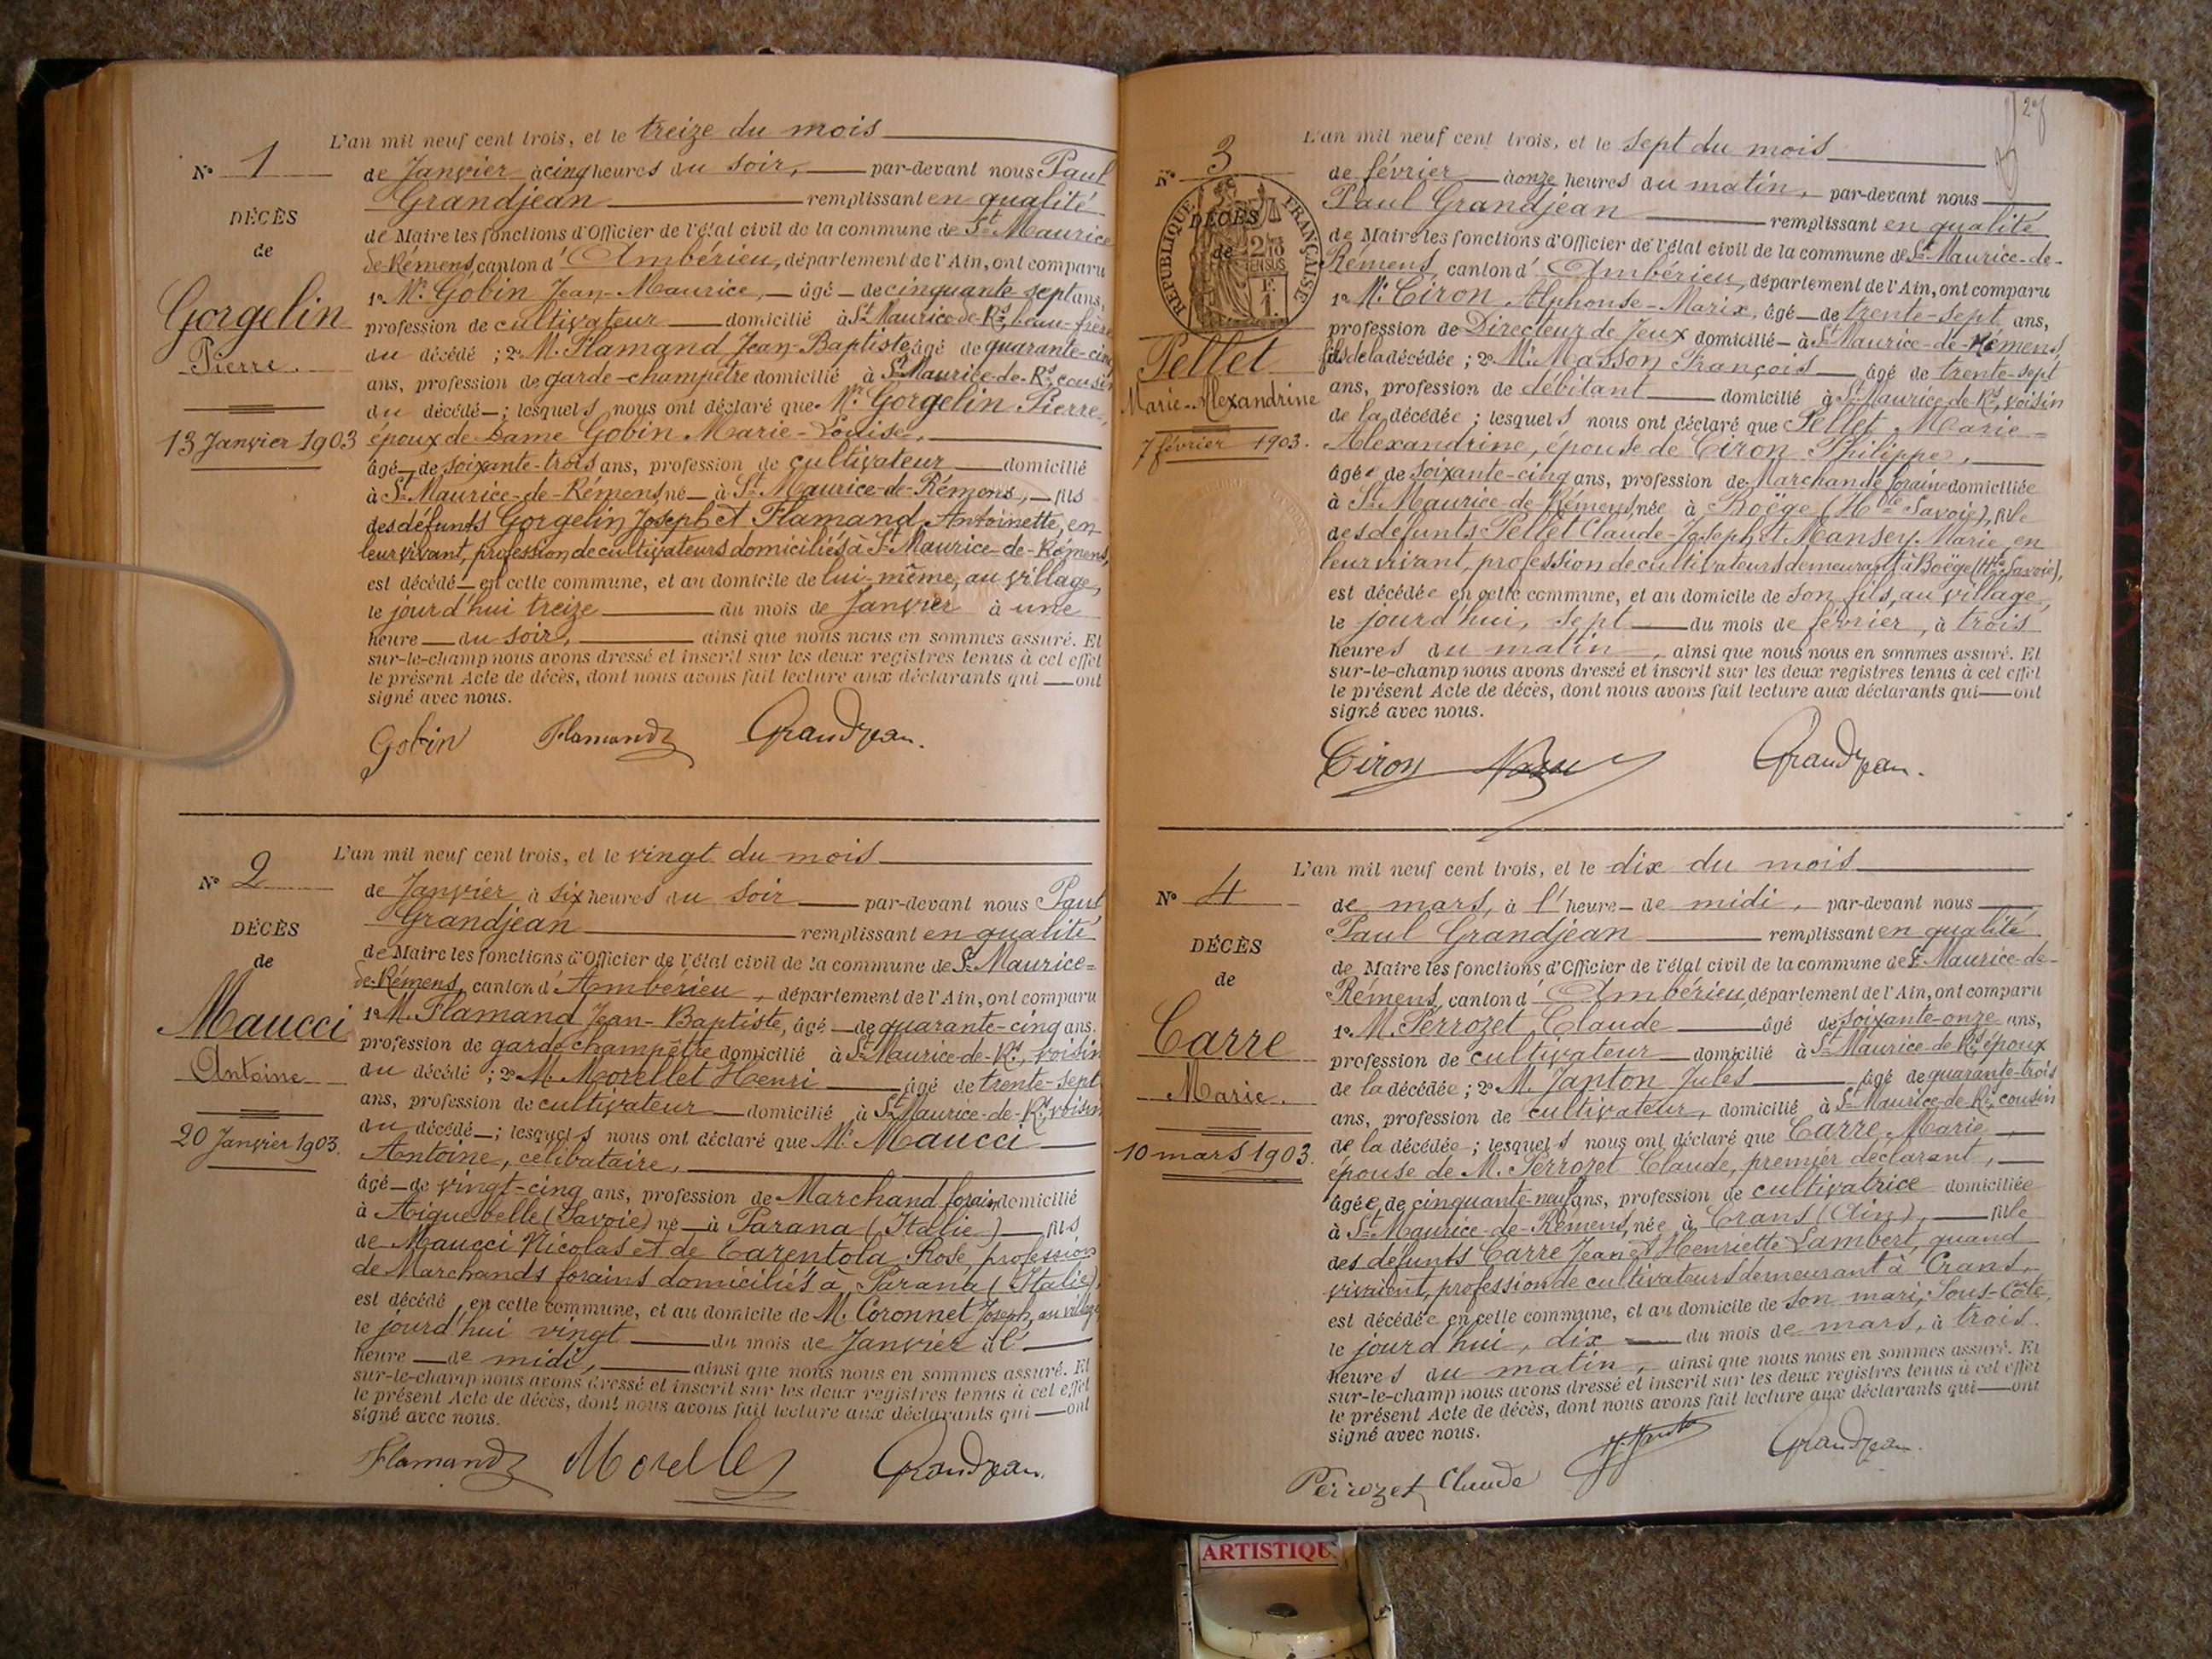 L'an mil neuf cent trois, et le treize du mois
N° 1
de Janvier à cinq heures du soir, par-devant nous Paul
Grandjean remplissant en qualité
DÉCÈS
de Maire les fonctions d'Officier de l'état civil de la commune de St Maurice
de
de-Rémens, canton d'Ambérieu, département de l'Ain, ont comparu
1° Mr Gobin Jean-Maurice, âgé de cinquante sept ans,
Gorgelin
profession de cultivateur domicilié à St Maurice-de-Rs, beau-frère
Pierre.
du décédé ; 2° M. Flamand Jean-Baptiste âgé de quarante-cinq
ans, profession de garde-champêtre domicilié à St Maurice-de-Rs, cousin
du décédé ; lesquels nous ont déclaré que Mr Gorgelin Pierre,
13 Janvier 1903
époux de Dame Gobin Marie-Louise,
âgé de soixante-trois ans, profession de cultivateur domicilié
à St Maurice-de-Rémens, né à St Maurice-de-Rémens, fils
des défunts Gorgelin Joseph et Flamand Antoinette, en
leur vivant, profession de cultivateurs domiciliés à St Maurice-de-Rémens,
est décédé en cette commune, et au domicile de lui-même, au village,
le jourd'hui treize du mois de Janvier à une
heure du soir, ainsi que nous nous en sommes assuré. Et
sur-le-champ nous avons dressé et inscrit sur les deux registres tenus à cet effet
le présent Acte de décès, dont nous avons fait lecture aux déclarants qui ont
signé avec nous.
Gobin Flamand Grandjean.
L'an mil neuf cent trois, et le vingt du mois
N° 2
de Janvier à six heures du soir par-devant nous Paul
Grandjean remplissant en qualité
DÉCÈS
de Maire les fonctions d'Officier de l'état civil de la commune de St Maurice-
de
de-Rémens, canton d'Ambérieu, département de l'Ain, ont comparu
Maucci
1° M. Flamand Jean-Baptiste, âgé de quarante-cinq ans.
profession de garde champêtre domicilié à St Maurice-de-Rs, voisin
Antoine
du décédé ; 2° M. Morellet Henri âgé de trente-sept
ans, profession de cultivateur domicilié à St Maurice-de-Rs, voisin
du décédé ; lesquels nous ont déclaré que Mr Maucci
20 Janvier 1903.
Antoine, célibataire,
âgé de vingt-cinq ans, profession de Marchand forain domicilié
à Aiguebelle (Savoie) né à Parana (Italie) fils
de Maucci Nicolas et de Tarentola Rose, profession
de Marchands forains domiciliés à Parana (Italie)
est décédé en cette commune, et au domicile de M. Coronnet Joseph, au village
le jourd'hui vingt du mois de Janvier à l'
heure de midi, ainsi que nous nous en sommes assuré. Et
sur-le-champ nous avons dressé et inscrit sur les deux registres tenus à cet effet
le présent Acte de décès, dont nous avons fait lecture aux déclarants qui ont
signé avec nous.
Flamand Morellet Grandjean.
27
L'an mil neuf cent trois, et le sept du mois
N° 3
de février à onze heures du matin, par-devant nous
Paul Grandjean remplissant en qualité
DÉCÈS
de
RÉPUBLIQUE FRANÇAISE
de Maire les fonctions d'Officier de l'état civil de la commune de St Maurice-de-
Rémens, canton d'Ambérieu, département de l'Ain, ont comparu
1° Mr Ciron Alphonse-Marix, âgé de trente-sept ans,
profession de Directeur de Jeux domicilié à St Maurice-de-Rémens,
Pellet
fils de la décédée ; 2° Mr Masson François âgé de trente-sept
Marie-Alexandrine
ans, profession de débitant domicilié à St Maurice de Rs, voisin
de la décédée ; lesquels nous ont déclaré que Pellet Marie-
7 février 1903.
Alexandrine, épouse de Ciron Philippe,
âgée de soixante-cinq ans, profession de Marchande foraine domiciliée
à St Maurice-de-Rémens, née à Boëge (Hte Savoie), fille
des défunts Pellet Claude-Joseph et Mansey Marie, en
leur vivant, profession de cultivateurs demeurant à Boëge (Hte Savoie),
est décédée en cette commune, et au domicile de son fils, au village,
le jourd'hui, sept du mois de février, à trois
heures du matin, ainsi que nous nous en sommes assuré. Et
sur-le-champ nous avons dressé et inscrit sur les deux registres tenus à cet effet
le présent Acte de décès, dont nous avons fait lecture aux déclarants qui ont
signé avec nous.
Ciron Grandjean.
L'an mil neuf cent trois, et le dix du mois
N° 4
de mars, à l'heure de midi, par-devant nous
Paul Grandjean remplissant en qualité
DÉCÈS
de Maire les fonctions d'Officier de l'état civil de la commune de St Maurice-de-
de
Rémens, canton d'Ambérieu, département de l'Ain, ont comparu
Carre
1° M. Perrozet Claude âgé de soixante-onze ans,
profession de cultivateur domicilié à St Maurice-de-Rs, époux
Marie.
de la décédée ; 2° M. Janton Jules âgé de quarante-trois
ans, profession de cultivateur, domicilié à St Maurice-de-Rs, cousin
de la décédée ; lesquels nous ont déclaré que Carre Marie,
10 mars 1903.
épouse de M. Perrozet Claude, premier déclarant,
âgée de cinquante-neuf ans, profession de cultivatrice domiciliée
à St Maurice-de-Rémens, née à Crans (Ain), fille
des défunts Carre Jean et Henriette Lambert, quand
vivaient, profession de cultivateurs demeurant à Crans,
est décédée en cette commune, et au domicile de son mari, Sous-Côte,
le jourd'hui, dix du mois de mars, à trois
heures du matin, ainsi que nous nous en sommes assuré. Et
sur-le-champ nous avons dressé et inscrit sur les deux registres tenus à cet effet
le présent Acte de décès, dont nous avons fait lecture aux déclarants qui ont
signé avec nous.
Perrozet Claude Grandjean.
ARTISTIQU